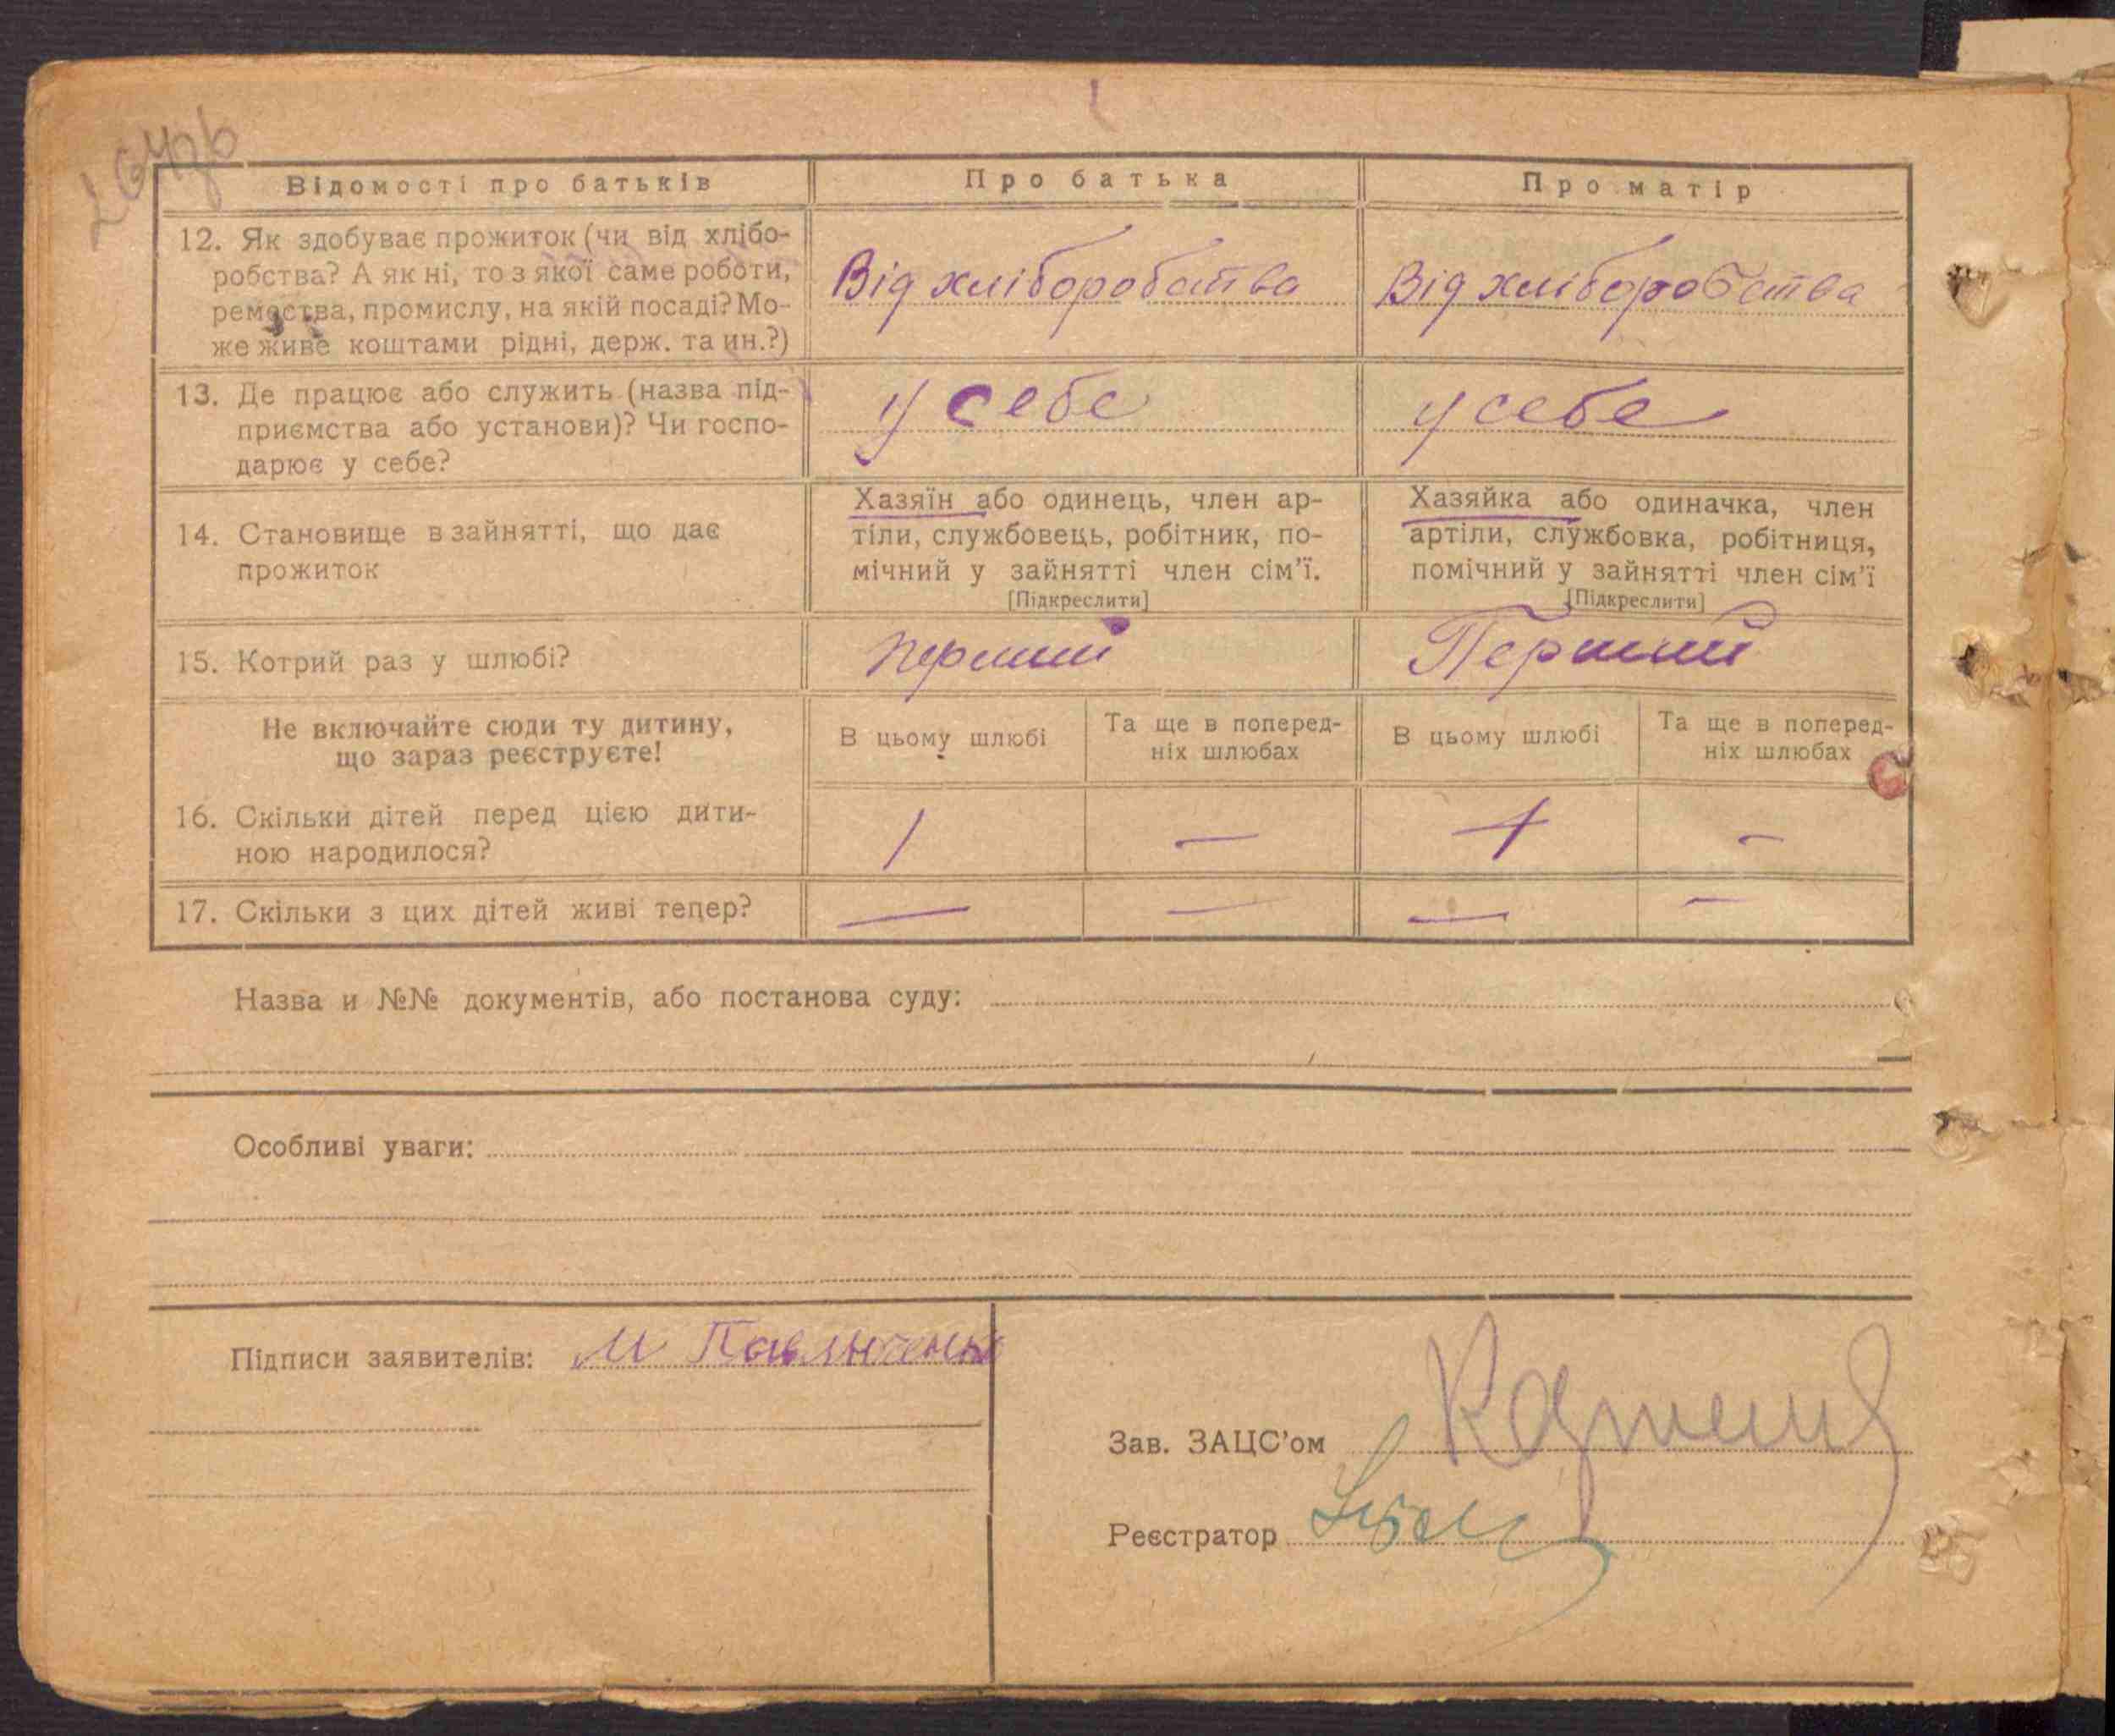 Відомості про батьків
Про батька
Про матір
12. Як здобуває прожиток (чи від хлібо-
робства? А як ні, то з якої саме роботи,
ремества, промислу, на якій посаді? Мо-
же живе коштами рідні, держ. та ин.?)
Від хліборобства
Від хліборобства
13. Де працює або служить (назва під-
приємства або установи)? Чи госпо-
дарює у себе?
у себе
у себе
14. Становище в зайнятті, що дає
прожиток
Хазяїн або одинець, член ар-
тіли, службовець, робітник, по-
мічний у зайнятті член сім'ї.
[Підкреслити]
Хазяйка або одиначка, член
артіли, службовка, робітниця,
помічний у зайнятті член сім'ї
[Підкреслити]
15. Котрий раз у шлюбі?
перший
Перший
Не включайте сюди ту дитину,
що зараз реєструєте!
В цьому шлюбі
Та ще в поперед-
ніх шлюбах
В цьому шлюбі
Та ще в поперед-
ніх шлюбах
16. Скільки дітей перед цією дити-
ною народилося?
1 — 1 —
17. Скільки з цих дітей живі тепер?
— — — —
Назва и №№ документів, або постанова суду:
Особливі уваги:
Підписи заявителів: М Павлюченко
Зав. ЗАЦС'ом
Реєстратор